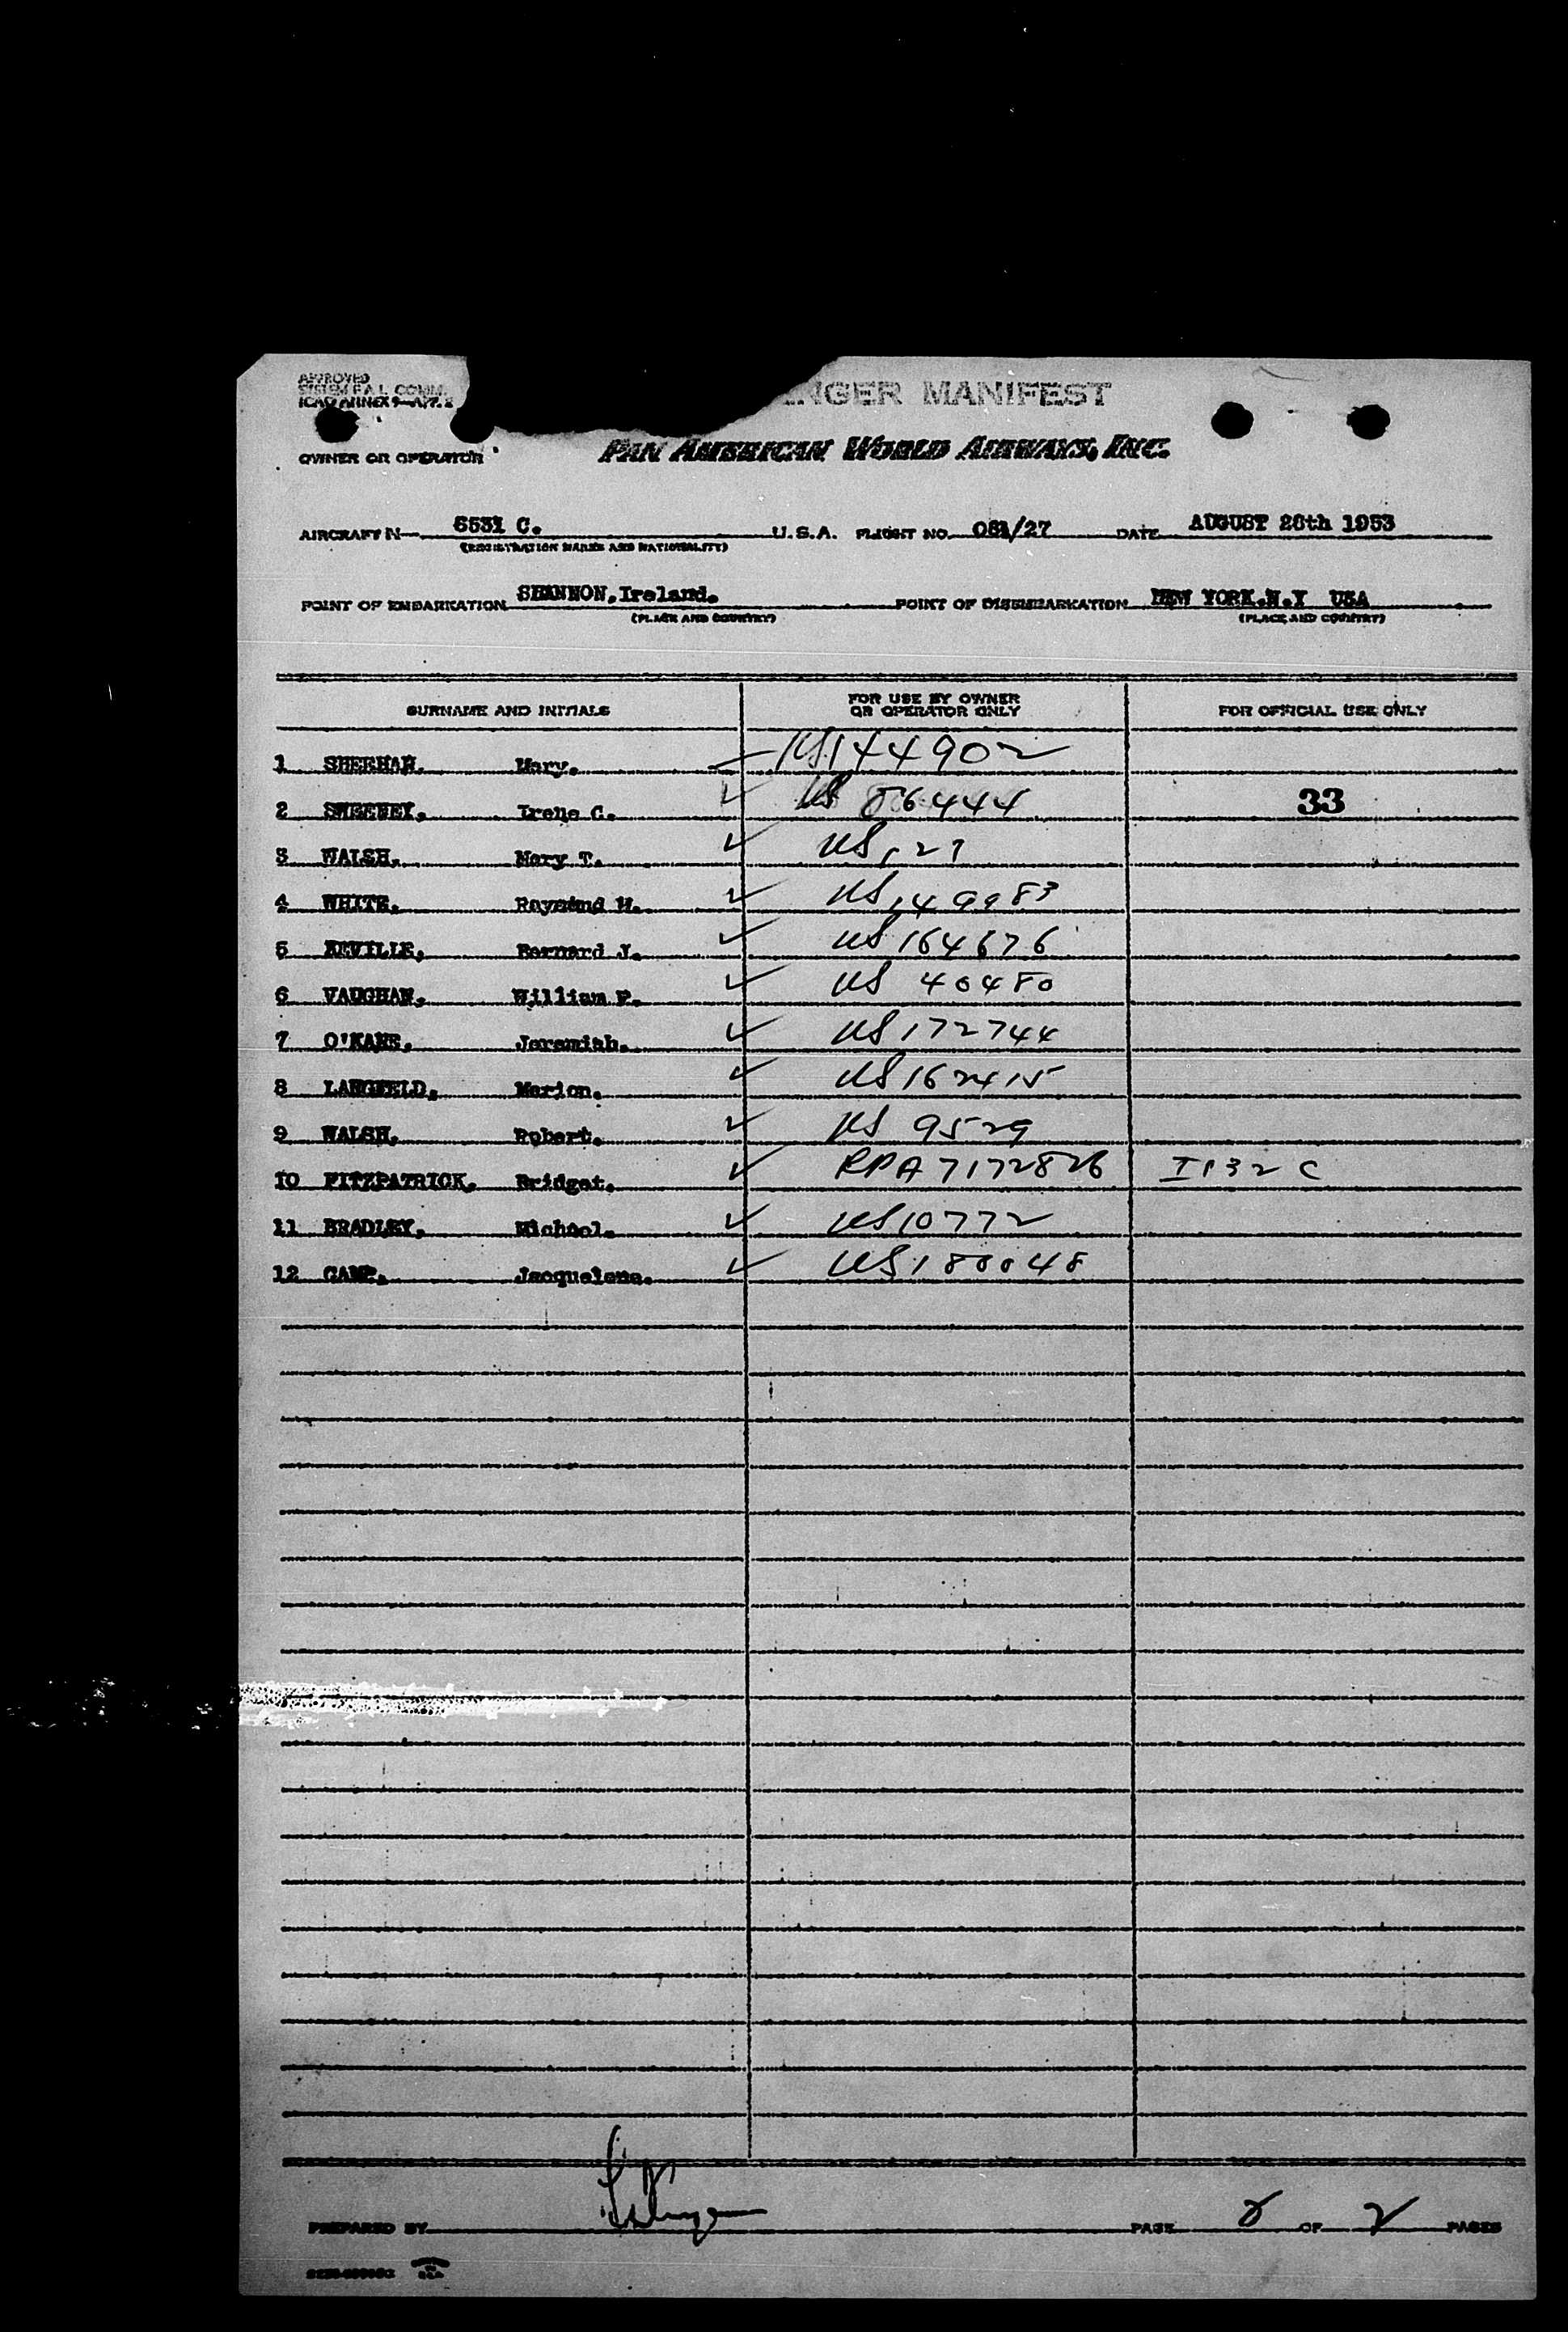 APPROVED
SYSTEM F.A.L. COMM.
ICAO ANNEX 9—APP. 2
NGER MANIFEST
OWNER OR OPERATOR PAN AMERICAN WORLD AIRWAYS, INC.
AIRCRAFT N— 6531 C. U.S.A. FLIGHT NO. 081/27 DATE AUGUST 28th 1953
(REGISTRATION MARKS AND NATIONALITY)
POINT OF EMBARKATION SHANNON, Ireland. POINT OF DISEMBARKATION NEW YORK.N.Y USA
(PLACE AND COUNTRY) (PLACE AND COUNTRY)
SURNAME AND INITIALS FOR USE BY OWNER FOR OFFICIAL USE ONLY
OR OPERATOR ONLY
1 Mary. US144902
2 SWEENEY. Irene C. US 86444 33
3 WALSH. Mary T. US 127
4 WHITE. Raymond US 149983
5 Bernard J. US 164676
6 VAUGHAN. William US 40480
7 O'KANE. Jeremiah. US 172744
8 Marion. US 162415
9 WALSH. Robert. US 9529
10 FITZPATRICK. Bridget. RPA 7172826 I 132 C
11 BRADLEY. Michael. US10772
12 Jacquelene. US 180048
PREPARED BY PAGE 2 OF 2 PAGES